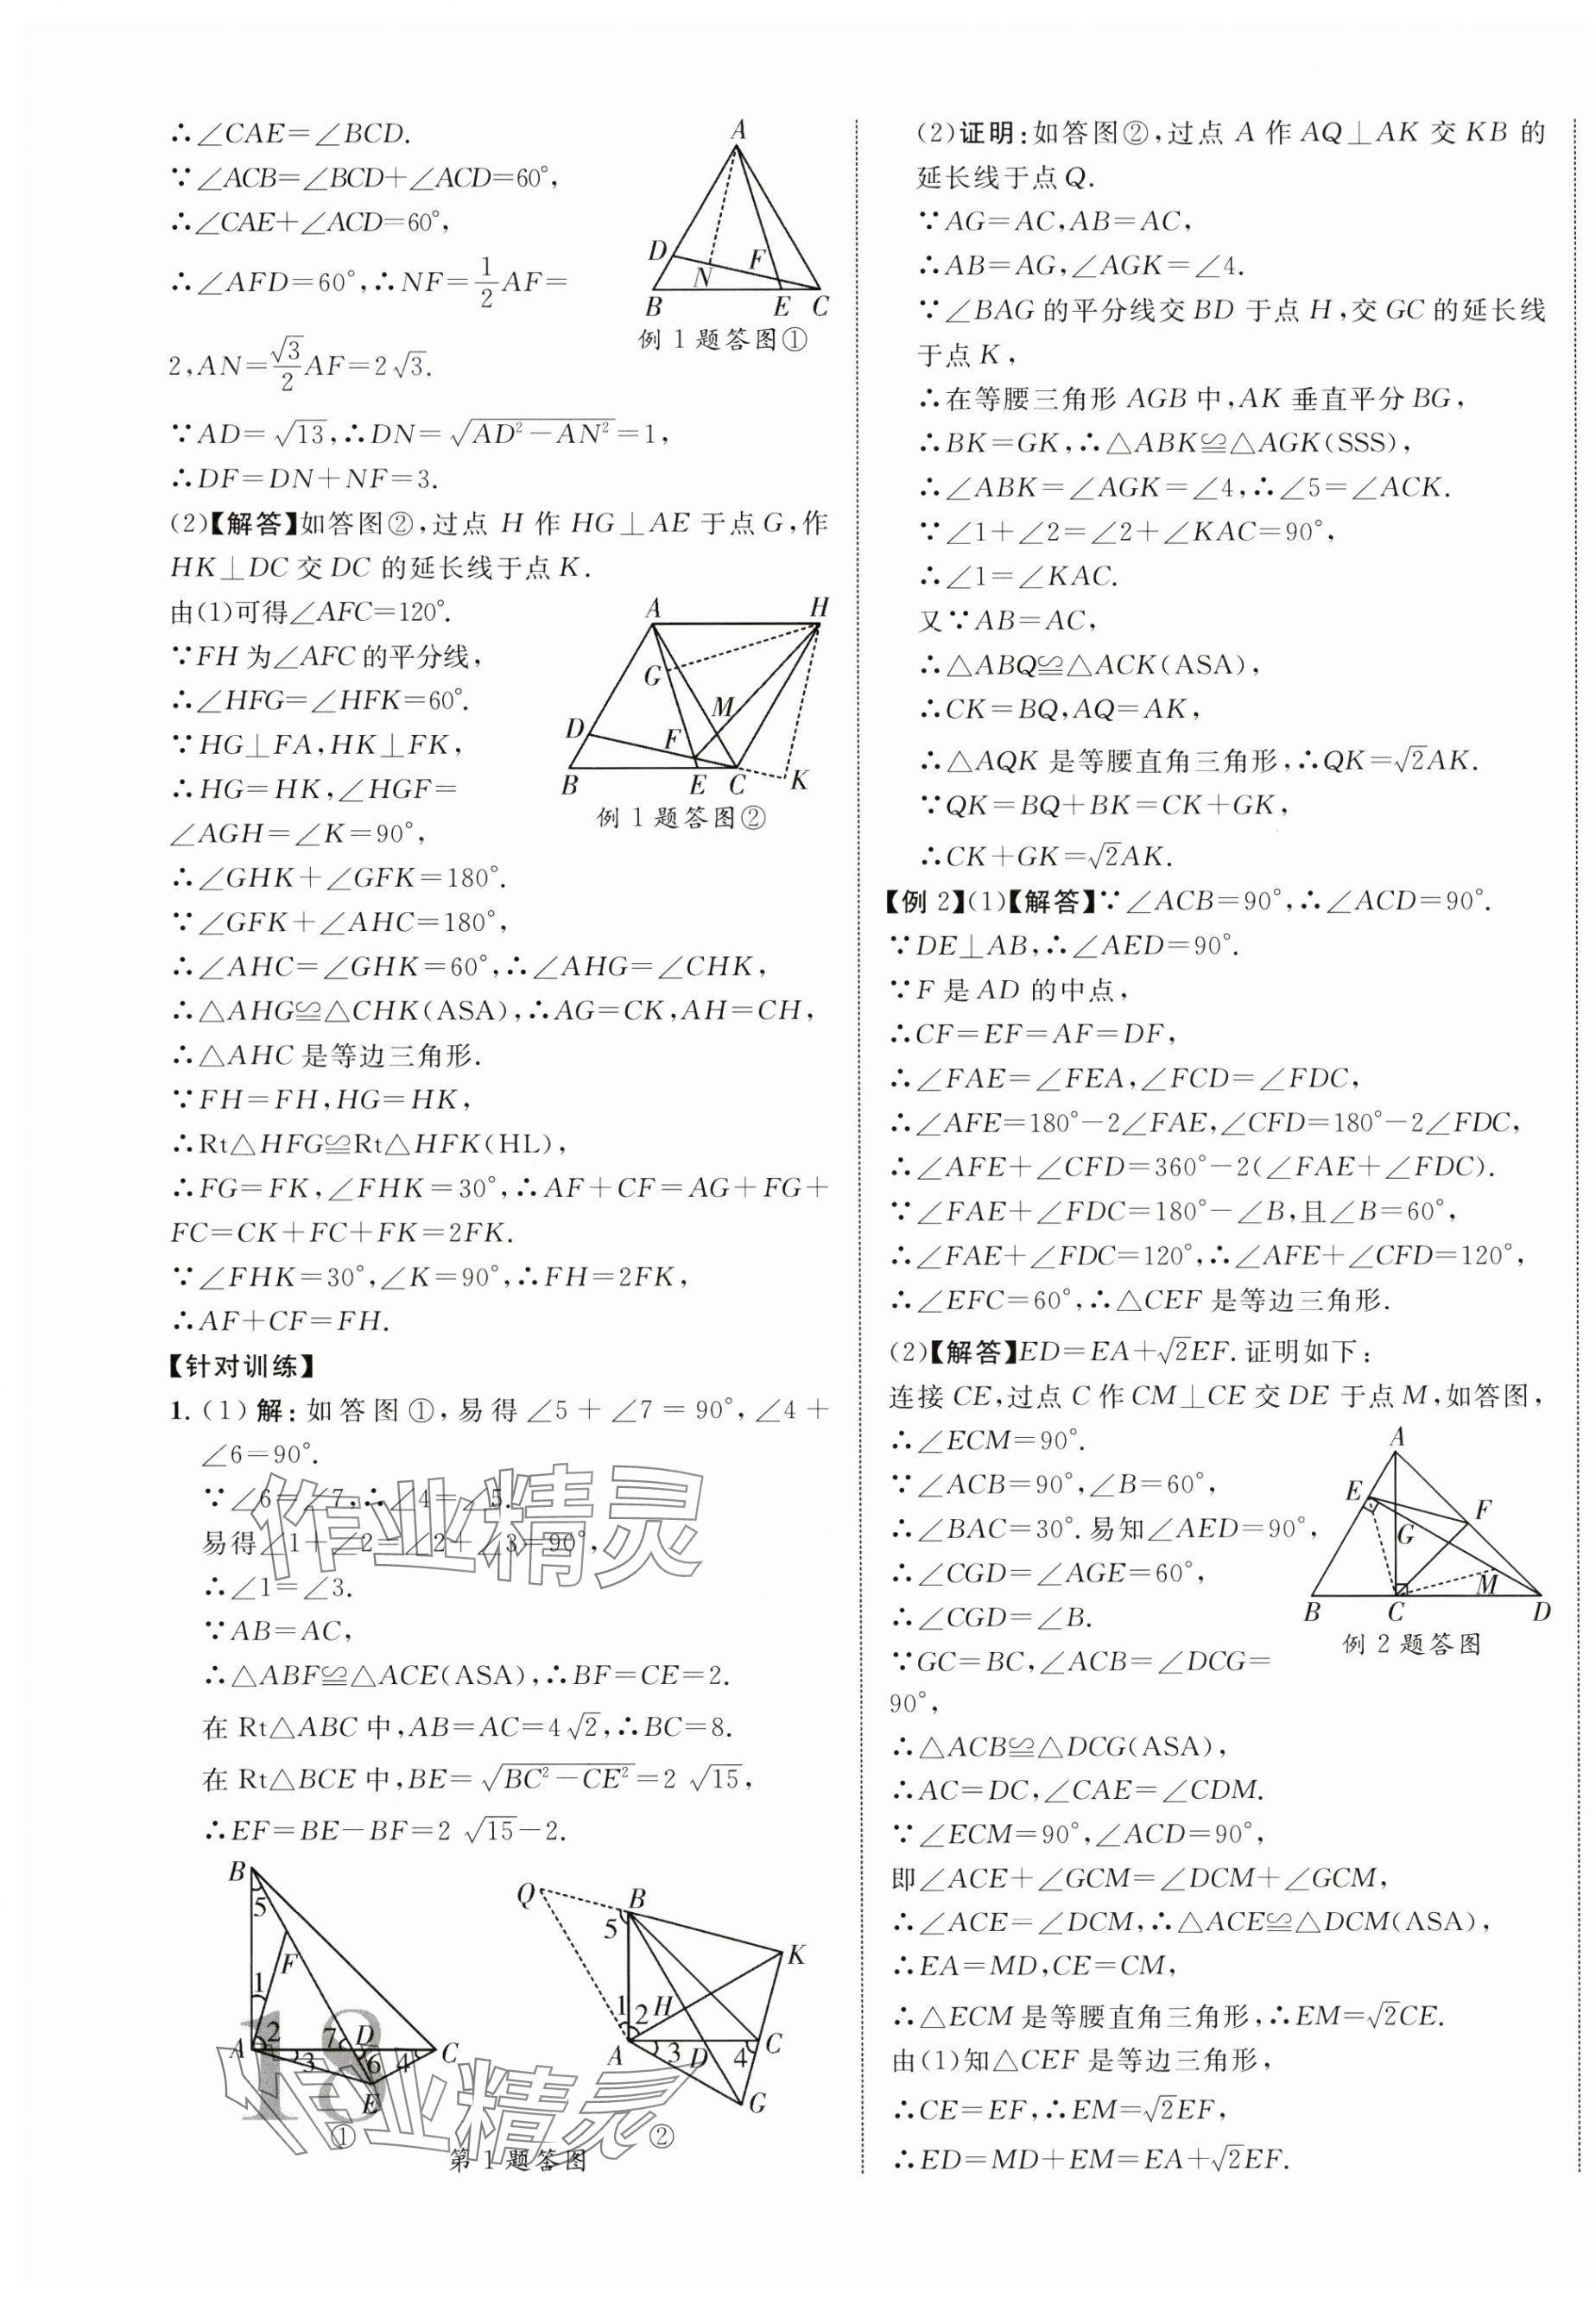 ∴∠CAE=∠BCD.
∵∠ACB=∠BCD+∠ACD=60°,
∴∠CAE+∠ACD=60°,
∴∠AFD=60°,∴NF=1/2AF=
2,AN=√3/2AF=2√3.
∵AD=√13,∴DN=√(AD²-AN²)=1,
∴DF=DN+NF=3.
A
D
N
F
B
E
C
例1题答图①
(2)【解答】如答图②,过点H作HG⊥AE于点G,作
HK⊥DC交DC的延长线于点K.
由(1)可得∠AFC=120°.
∵FH为∠AFC的平分线,
∴∠HFG=∠HFK=60°.
∵HG⊥FA,HK⊥FK,
∴HG=HK,∠HGF=
∠AGH=∠K=90°,
A
H
G
M
D
F
B
E
C
K
例1题答图②
∴∠GHK+∠GFK=180°.
∵∠GFK+∠AHC=180°,
∴∠AHC=∠GHK=60°,∴∠AHG=∠CHK,
∴△AHG≌△CHK(ASA),∴AG=CK,AH=CH,
∴△AHC是等边三角形.
∵FH=FH,HG=HK,
∴Rt△HFG≌Rt△HFK(HL),
∴FG=FK,∠FHK=30°,∴AF+CF=AG+FG+
FC=CK+FC+FK=2FK.
∵∠FHK=30°,∠K=90°,∴FH=2FK,
∴AF+CF=FH.
【针对训练】
1.(1)解:如答图①,易得∠5+∠7=90°,∠4+
∠6=90°.
∵∠6=∠7,∴∠4=∠5.
易得∠1+∠2=∠2+∠3=90°,
∴∠1=∠3.
∵AB=AC,
∴△ABF≌△ACE(ASA),∴BF=CE=2.
在Rt△ABC中,AB=AC=4√2,∴BC=8.
在Rt△BCE中,BE=√(BC²-CE²)=2√15,
∴EF=BE-BF=2√15-2.
B
5
F
1
A
2
7
D
3
6
4
C
E
①
Q
B
5
K
1
2
H
A
3
D
4
C
G
②
第1题答图
18
作业精灵
作业精灵
(2)证明:如答图②,过点A作AQ⊥AK交KB的
延长线于点Q.
∵AG=AC,AB=AC,
∴AB=AG,∠AGK=∠4.
∵∠BAG的平分线交BD于点H,交GC的延长线
于点K,
∴在等腰三角形AGB中,AK垂直平分BG,
∴BK=GK,∴△ABK≌△AGK(SSS),
∴∠ABK=∠AGK=∠4,∴∠5=∠ACK.
∵∠1+∠2=∠2+∠KAC=90°,
∴∠1=∠KAC.
又∵AB=AC,
∴△ABQ≌△ACK(ASA),
∴CK=BQ,AQ=AK,
∴△AQK是等腰直角三角形,∴QK=√2AK.
∵QK=BQ+BK=CK+GK,
∴CK+GK=√2AK.
【例2】(1)【解答】∵∠ACB=90°,∴∠ACD=90°.
∵DE⊥AB,∴∠AED=90°.
∵F是AD的中点,
∴CF=EF=AF=DF,
∴∠FAE=∠FEA,∠FCD=∠FDC,
∴∠AFE=180°-2∠FAE,∠CFD=180°-2∠FDC,
∴∠AFE+∠CFD=360°-2(∠FAE+∠FDC).
∵∠FAE+∠FDC=180°-∠B,且∠B=60°,
∴∠FAE+∠FDC=120°,∴∠AFE+∠CFD=120°,
∴∠EFC=60°,∴△CEF是等边三角形.
(2)【解答】ED=EA+√2EF.证明如下:
连接CE,过点C作CM⊥CE交DE于点M,如答图,
∴∠ECM=90°.
∵∠ACB=90°,∠B=60°,
∴∠BAC=30°.易知∠AED=90°,
∴∠CGD=∠AGE=60°,
∴∠CGD=∠B.
∵GC=BC,∠ACB=∠DCG=
90°,
A
E
F
G
M
B
C
D
例2题答图
∴△ACB≌△DCG(ASA),
∴AC=DC,∠CAE=∠CDM.
∵∠ECM=90°,∠ACD=90°,
即∠ACE+∠GCM=∠DCM+∠GCM,
∴∠ACE=∠DCM,∴△ACE≌△DCM(ASA),
∴EA=MD,CE=CM,
∴△ECM是等腰直角三角形,∴EM=√2CE.
由(1)知△CEF是等边三角形,
∴CE=EF,∴EM=√2EF,
∴ED=MD+EM=EA+√2EF.